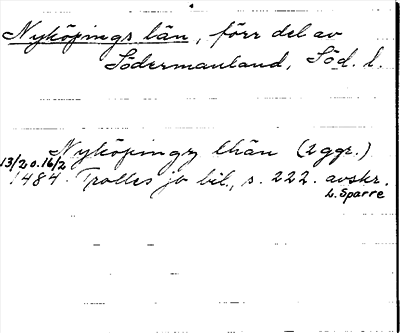 Nyköpings län, förr del av
Södermanland, Söd. l.
Nyköpings lhän (2 ggr.)
13/2 o. 16/2
1484. Trolles jo bil., s. 222. avskr.
L. Sparre